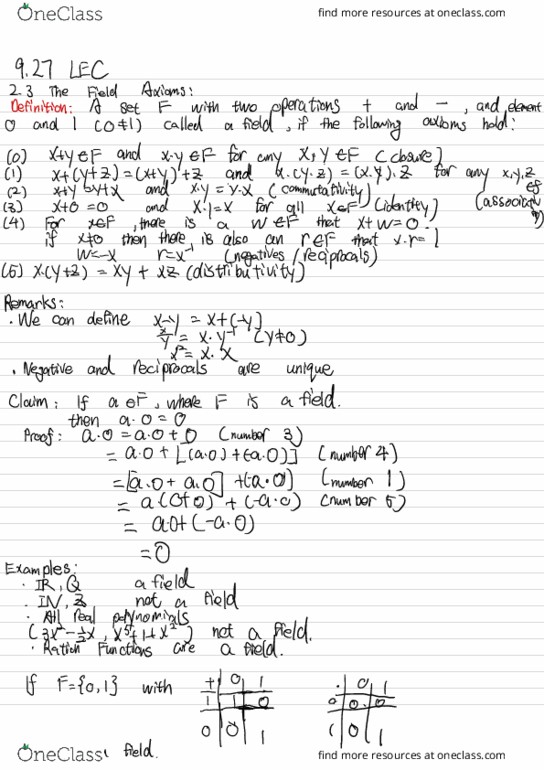 OneClass
find more resources at oneclass.com
9.27 LEC
2.3 The Field Axioms:
Definition: A set F with two operations + and −, and element
0 and 1 (0≠1) called a field, if the following axioms hold:
(0) x+y∈F and x·y∈F for any x, y∈F (closure)
(1) x+(y+z)=(x+y)+z and x·(y·z)=(x·y)·z for any x,y,z
∈F
(2) x+y=y+x and x·y=y·x (commutativity)
(3) x+0=0 and x·1=x for all x∈F (identity) (associativity)
(4) For x∈F, there is a w∈F that x+w=0.
if x≠0 then there, is also can r∈F that x·r=1
w=-x r=x⁻¹ (negatives / reciprocals)
(5) x·(y+z) = xy + xz (distributivity)
Remarks:
· We can define x-y = x+(-y)
x/y = x·y⁻¹ (y≠0)
x² = x·x
· Negative and reciprocals are unique
Claim: If a∈F, where F is a field.
then a·0=0
Proof: a·0=a·0+0 (number 3)
= a·0+[(a·0)+(-a·0)] (number 4)
=[a·0+a·0]+(-a·0) (number 1)
= a(0+0) + (-a·0) (number 5)
= a·0+(-a·0)
=0
Examples:
· ℝ, Q a field
· ℕ, Z not a field
· All real polynomials
(3x²-½x, x⁵+1+x²) not a field.
· Ration Functions are a field.
If F={0,1} with + 0 1 · 0 1
1 1 0 0 0 0
0 0 1 1 0 1
OneClass
field.
find more resources at oneclass.com